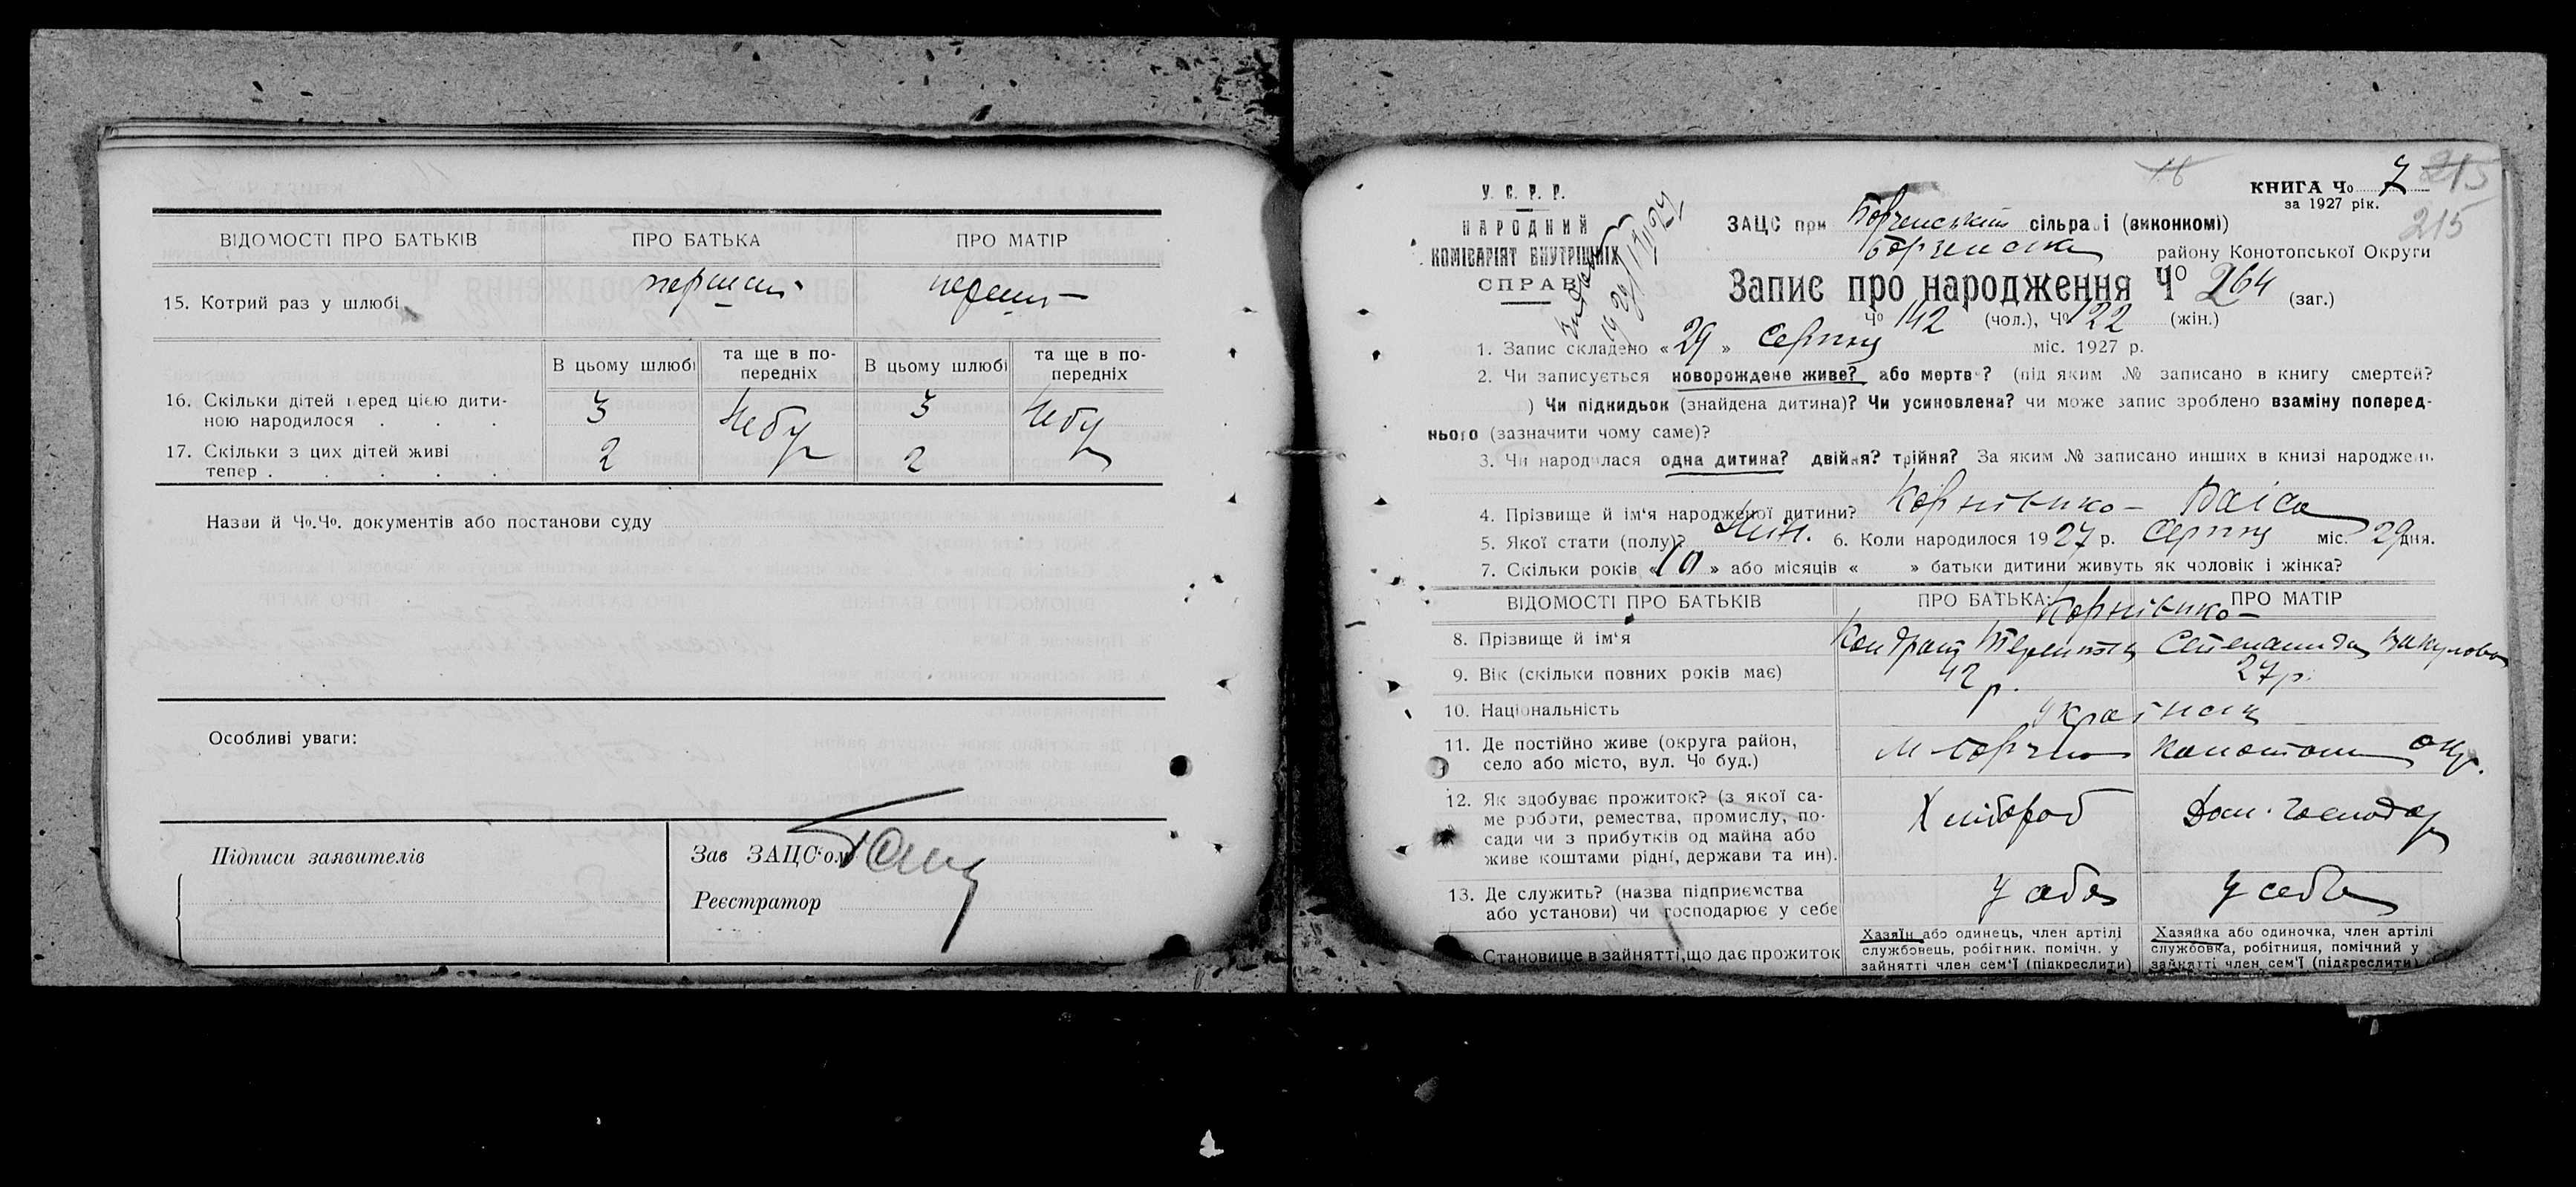 ВІДОМОСТІ ПРО БАТЬКІВ ПРО БАТЬКА ПРО МАТІР
15. Котрий раз у шлюбі перший перший
В цьому шлюбі та ще в попередніх В цьому шлюбі та ще в попередніх
16. Скільки дітей перед цією дити-
ною народилося . . . 3 Небу 3 Небу
17. Скільки з цих дітей живі
тепер . . . . . 2 2
Назви й Чо.Чо. документів або постанови суду
Особливі уваги:
Підписи заявителів
Зав ЗАЦС'ом
Реєстратор
У. С. Р. Р.
НАРОДНИЙ
КОМІСАРІЯТ ВНУТРІШНІХ
СПРАВ
КНИГА Чо 7
за 1927 рік.
215
215
ЗАЦС при Борзенський сільраді (виконкомі)
Борзенська району Конотопської Округи
Запис про народження Чо 264 (заг.)
Чо 142 (чол.), Чо 122 (жін.)
1. Запис складено « 29 » Серпня міс. 1927 р.
2. Чи записується новорождене живе? або мертве? (під яким № записано в книгу смертей?
) Чи підкидьок (знайдена дитина)? Чи усиновлена? чи може запис зроблено взаміну поперед-
нього (зазначити чому саме)?
3. Чи народилася одна дитина? двійня? трійня? За яким № записано инших в книзі народжень
4. Прізвище й ім'я народженої дитини? Корнієнко – Раіса
5. Якої стати (полу)? жін. 6. Коли народилося 1927 р. Серпня міс. 29 дня.
7. Скільки років « 10 » або місяців « » батьки дитини живуть як чоловік і жінка?
ВІДОМОСТІ ПРО БАТЬКІВ ПРО БАТЬКА: ПРО МАТІР
Корнієнко –
8. Прізвище й ім'я Кондрат Терентів Степанида Вакулова
9. Вік (скільки повних років має) 42 р. 27 р.
10. Національність Українці
11. Де постійно живе (округа район,
село або місто, вул. Чо буд.) м Борзна Конотоп окр.
12. Як здобуває прожиток? (з якої са-
ме роботи, ремества, промислу, по-
сади чи з прибутків од майна або
живе коштами рідні, держави та ин). Хлібороб Дом. господар
13. Де служить? (назва підприємства
або установи) чи господарює у себе у себе у себе
Становище в зайнятті, що дає прожиток
Хазяїн або одинець, член артілі
службовець, робітник. помічн. у
зайнятті член сем'ї (підкреслити)
Хазяйка або одиночка, член артілі
службовка, робітниця, помічний у
зайнятті член сем'ї (підкреслити)